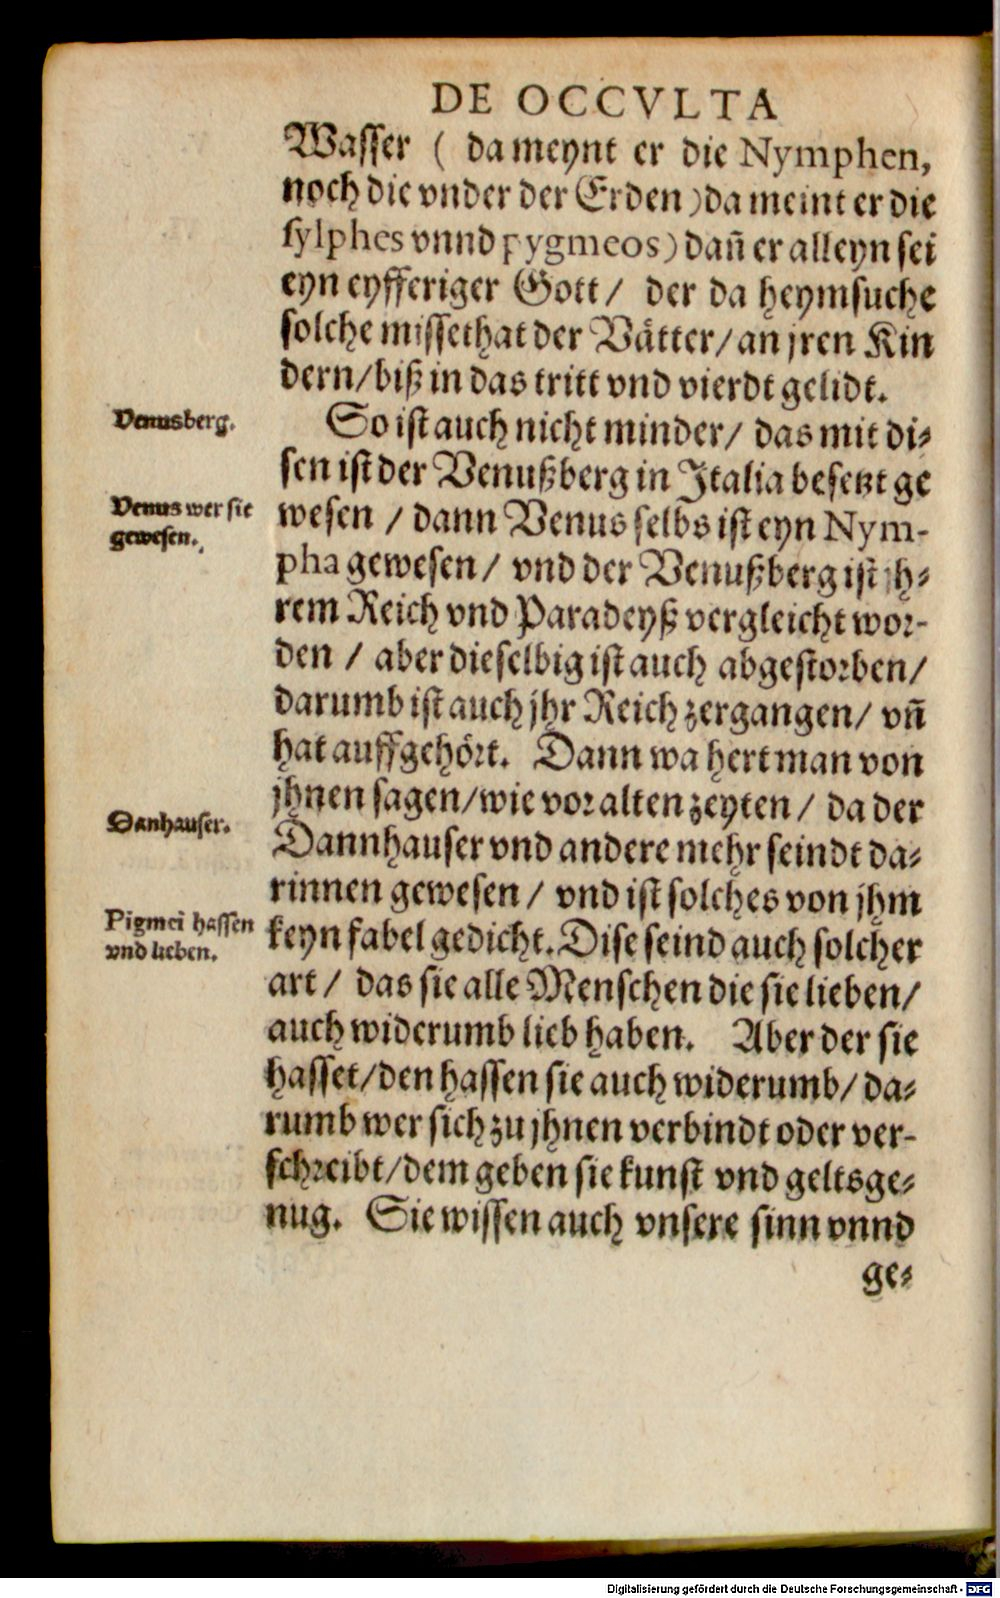 DE OCCVLTA
Wasser ( da meynt er die Nymphen,
noch die vnder der Erden )da meint er die
sylphes vnnd pygmeos) dañ er alleyn sei
eyn eyfferiger Gott/ der da heymsuche
solche missethat der Vätter/an jren Kin
dern/biß in das tritt vnd vierdt gelidt.
Venusberg.
So ist auch nicht minder/ das mit di⸗
sen ist der Venußberg in Italia besetzt ge
Venus wer sie
gewesen.
wesen / dann Venus selbs ist eyn Nym-
pha gewesen/ vnd der Venußberg ist jh⸗
rem Reich vnd Paradeyß vergleicht wor-
den / aber dieselbig ist auch abgestorben/
darumb ist auch jhr Reich zergangen/ vñ
hat auffgehört. Dann wa hert man von
jhnen sagen/wie vor alten zeyten/ da der
Danhauser.
Dannhauser vnd andere mehr seindt da⸗
rinnen gewesen / vnd ist solches von jhm
Pigmei hassen
vnd lieben.
keyn fabel gedicht. Dise seind auch solcher
art/ das sie alle Menschen die sie lieben/
auch widerumb lieb haben. Aber der sie
hasset/den hassen sie auch widerumb/ da⸗
rumb wer sich zu jhnen verbindt oder ver-
schreibt/dem geben sie kunst vnd gelts ge⸗
nug. Sie wissen auch vnsere sinn vnnd
ge⸗
Digitalisierung gefördert durch die Deutsche Forschungsgemeinschaft - DFG